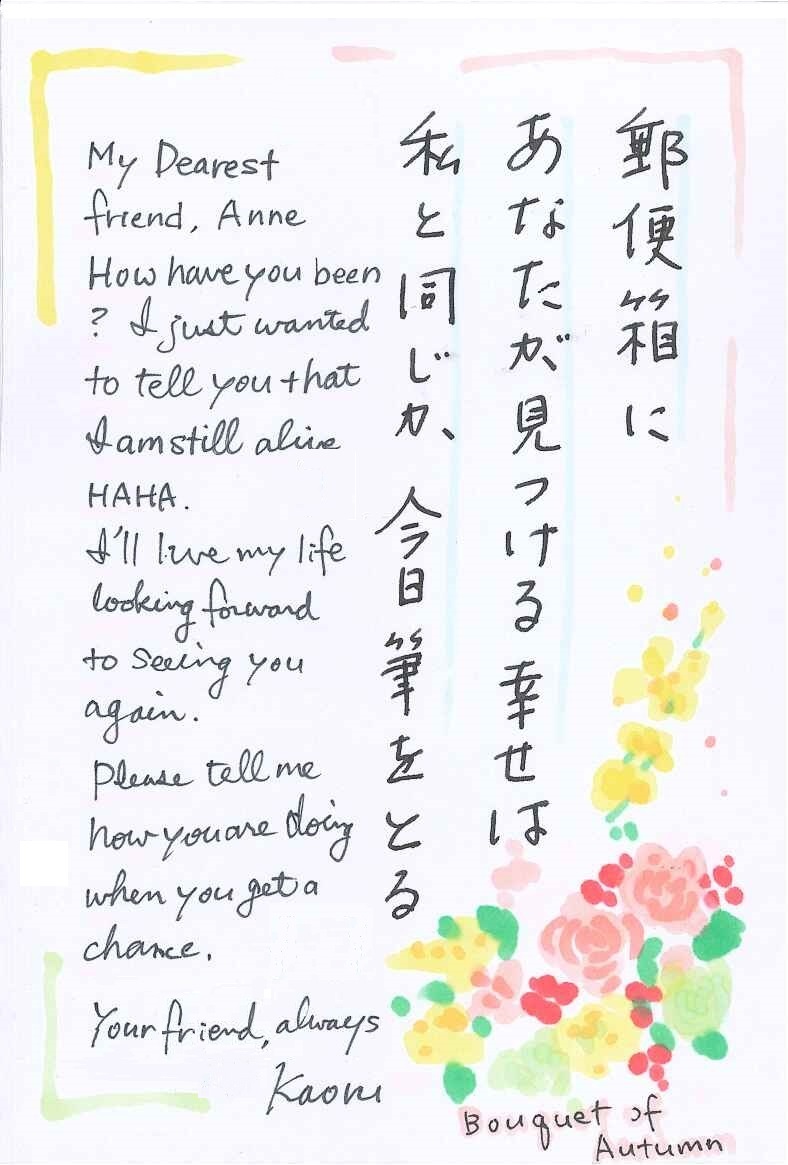 郵便箱に
あなたが見つける幸せは
私と同じか、今日筆をとる
My Dearest
friend, Anne
How have you been
? I just wanted
to tell you that
I am still alive
HAHA.
I'll live my life
looking forward
to seeing you
again.
Please tell me
how you are doing
when you get a
chance.
Your friend, always
Kaoru
Bouquet of
Autumn